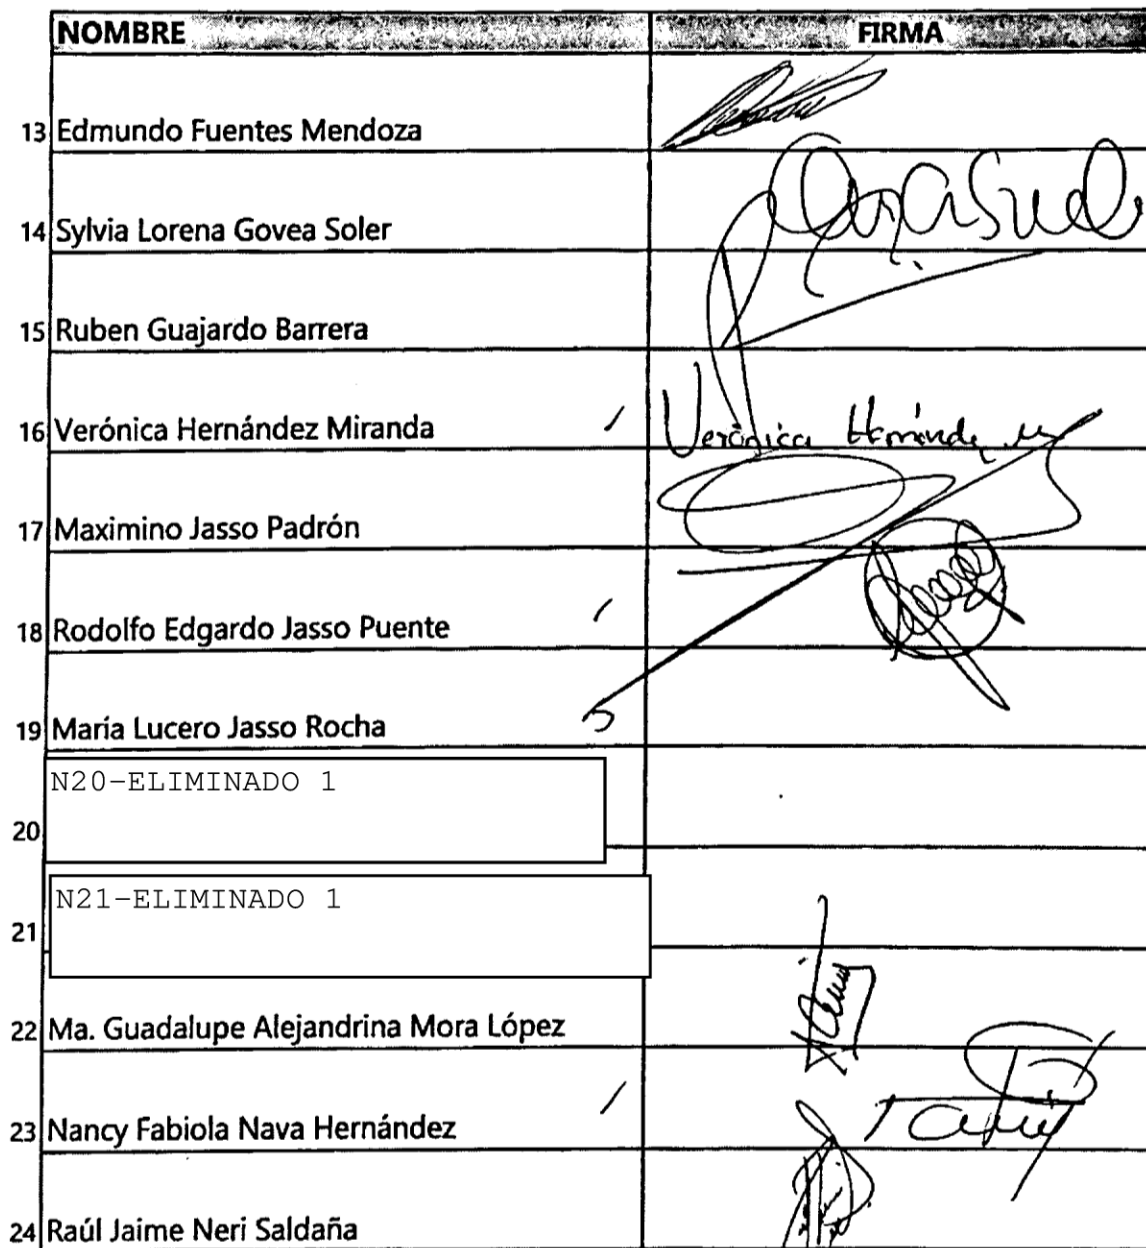 NOMBRE FIRMA
13 Edmundo Fuentes Mendoza
14 Sylvia Lorena Govea Soler
15 Ruben Guajardo Barrera
16 Verónica Hernández Miranda Verónica Hernández M
17 Maximino Jasso Padrón
18 Rodolfo Edgardo Jasso Puente
19 María Lucero Jasso Rocha
20 N20-ELIMINADO 1
21 N21-ELIMINADO 1
22 Ma. Guadalupe Alejandrina Mora López
23 Nancy Fabiola Nava Hernández
24 Raúl Jaime Neri Saldaña